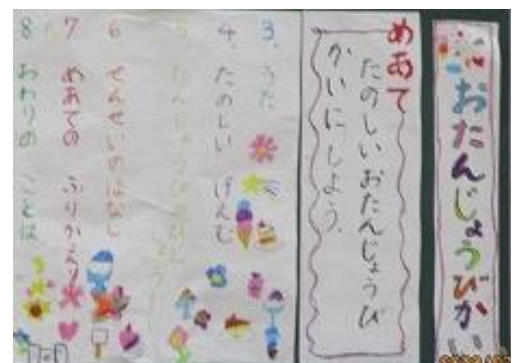 おたんじょうびかい
めあて
たのしいおたんじょうび
かいにしよう。
3、うた
4、たのしい げえむ
5
6 せんせいのはなし
7 めあての ふりかえり
8 おわりの ことば